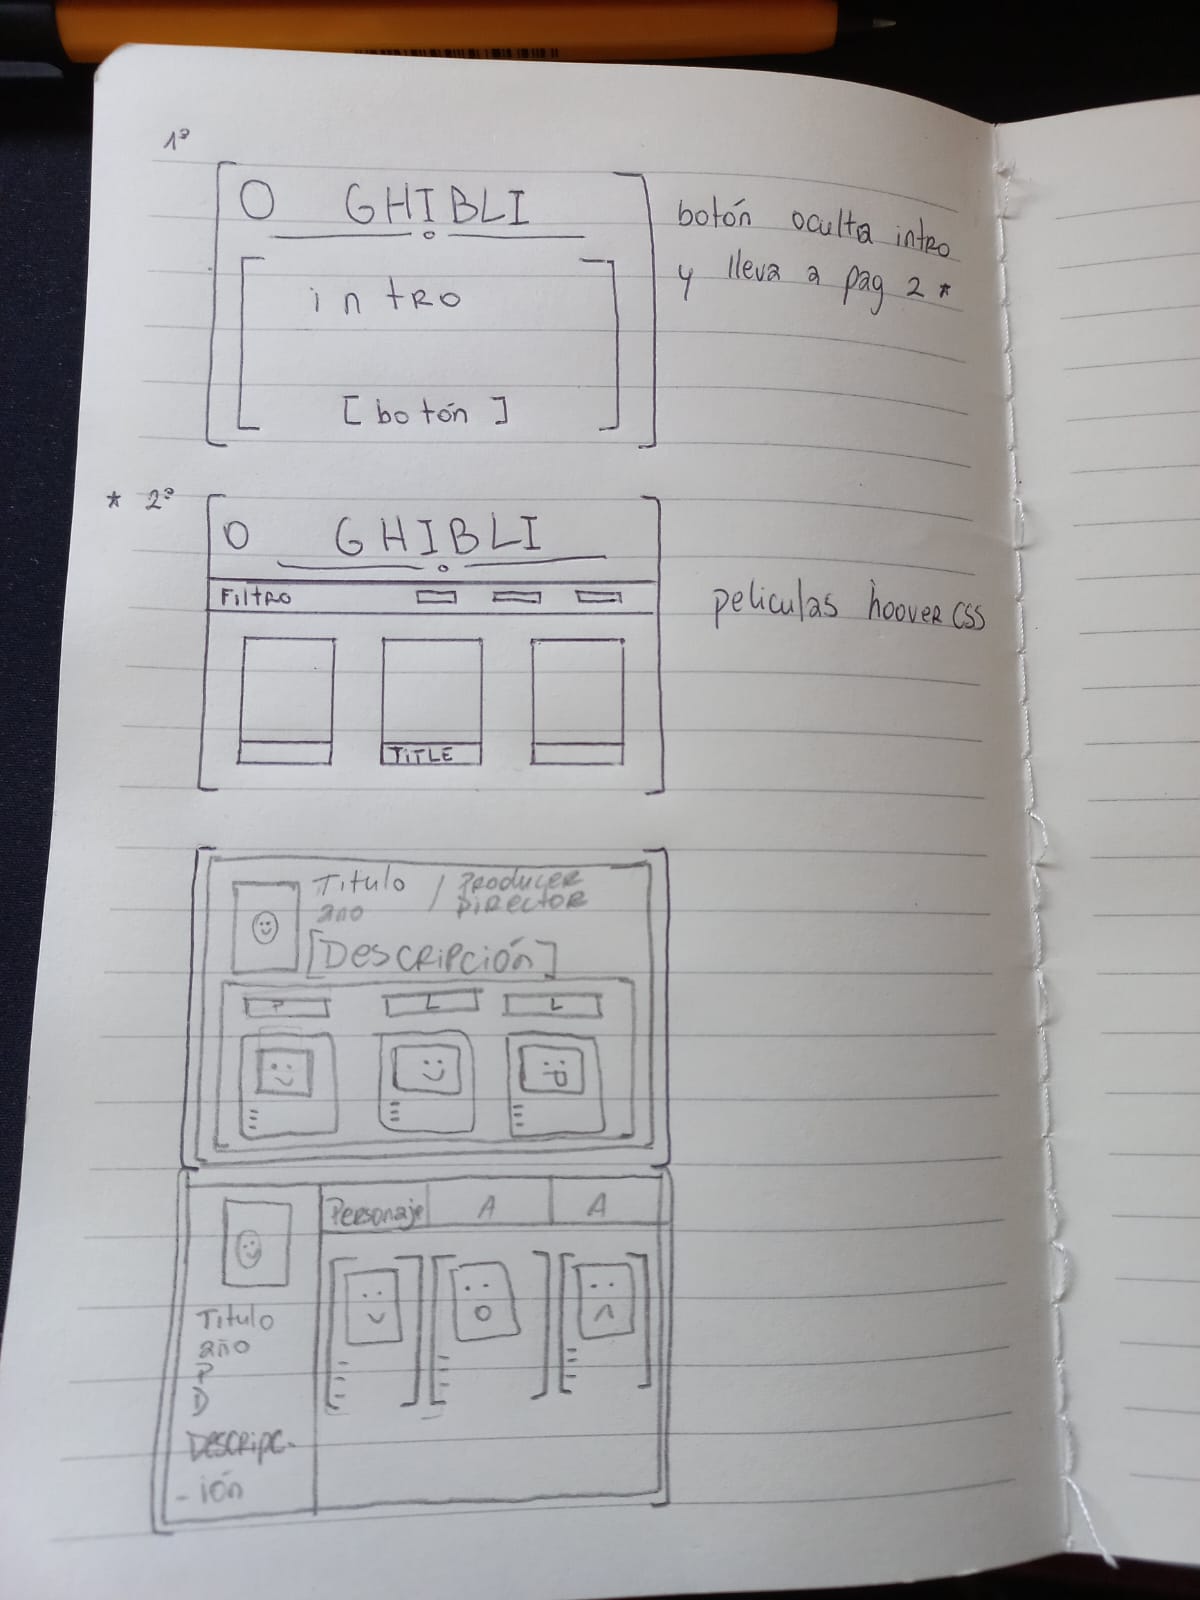 1ª
O GHIBLI
intro
[botón]
botón oculta intro
y lleva a pag 2 *
* 2ª
O GHIBLI
Filtro
TITLE
peliculas hoover CSS
Titulo / Producer
año Director
[Descripción]
P L L
Personaje A A
Titulo
año
P
D
Descripc-
-ión